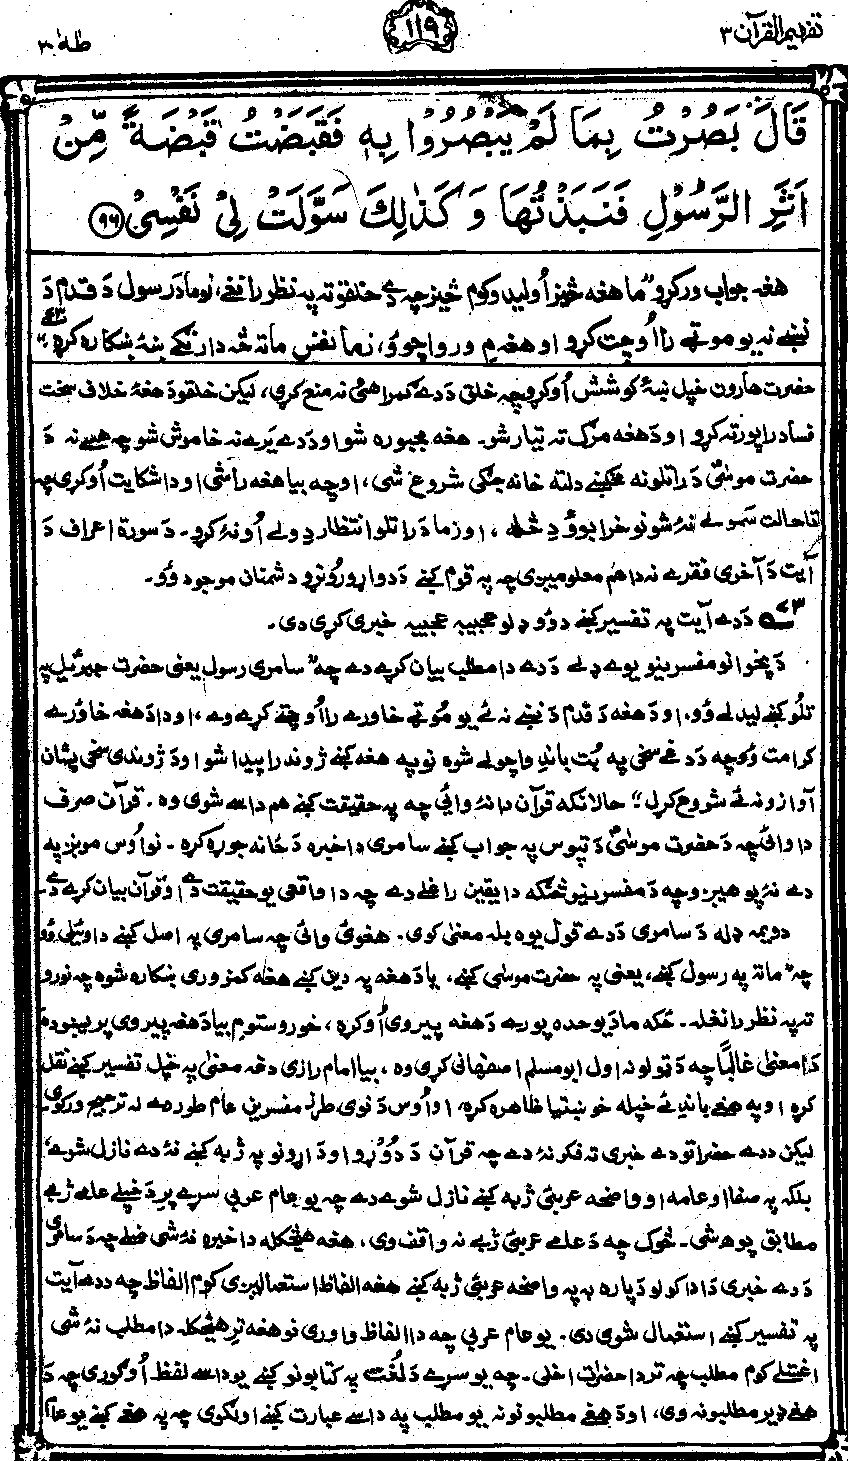 تفہیم القرآن ۳
۱۱۹
طٰهٰ ۲۰
قَالَ بَصُرْتُ بِمَا لَمْ يَبْصُرُوْا بِهٖ فَقَبَضْتُ قَبْضَةً مِّنْ
اَثَرِ الرَّسُوْلِ فَنَبَذْتُهَا وَكَذٰلِكَ سَوَّلَتْ لِيْ نَفْسِيْ ۹۶
هغه جواب ورکړو "ما هغه څيز اُوليدو کوم څيز چه دے خلقو ته په نظر رانغے، نو ما دَ رسول دَ قدم دَ
نښے نه يو موټے را اُوچت کړو او هغه مِ ورواچوو، زما نفس ماته څه دا رنګے ښهٔ ښکاره کړه"
حضرت هارون خپل ښهٔ کوشش اُوکړو چه خلق دَ دے ګمراهئ نه منع کړی، ليکن خلقو دَ هغهٔ خلاف سخت
فساد راپورته کړو او دَ هغه مرګ ته تيار شو۔ هغه مجبوره شو او دَ دے يرے نه خاموش شو چه هسے نه دَ
حضرت موسیٰؑ دَ راتلو نه مخکښے دلته خانه جنګی شروع شی، او چه بيا هغه راشی او دا شکايت اُوکړی چه
تا حالت سمولے نهٔ شو نو خرابوؤ دِ څله، او زما دَ راتلو انتظار دِ ولے اُونهٔ کړو۔ دَ سورة اعراف دَ
آيت دَ آخری فقرے نه دا هم معلوميږی چه په قوم کښے دَ دواړو روڼړو دشمنان موجود وُو۔
دَ دے آيت په تفسير کښے دوؤ ډلو عجيبه عجيبه خبری کړی دی۔
دَ پخوانو مفسرينو يوے ډلے دَ دے دا مطلب بيان کړے دے چه "سامری رسول يعنی حضرت جبرئيل په
تلو کښے ليدلے وُو، او دَ هغه دَ قدم دَ نښے نه ئے يو مُوټے خاورے را اُوچتے کړے وے، او دا دَ هغه خاورے
کرامت وُو چه دَ دغے سخی په بُت باندِ واچولے شوه نو په هغه کښے ژوند را پيدا شو او دَ ژوندی سخی پشان
آوازونه ئے شروع کړل" حالانکه قرآن دا نهٔ وائی چه په حقيقت کښے هم داسے شوی وه۔ قرآن صرف
دا وائی چه دَ حضرت موسیٰؑ دَ تپوس په جواب کښے سامری دا خبره دَ ځانه جوړه کړه۔ نو اُوس مونږ په
دے نهٔ پوهيږو چه دَ مفسرينو څنګه دا يقين راغلے دے چه دا واقعی يو حقيقت دے او قرآن بيان کړے دے۔
دويمه ډله دَ سامری دَ دے قول يوه بله معنیٰ کوی۔ هغوئ وائی چه سامری په اصل کښے دا وئيلی وُو
چه "ماته په رسول کښے، يعنی په حضرت موسیٰ کښے، يا دَ هغه په دين کښے هغه کمزوری ښکاره شوه چه نورو
ته په نظر رانغله۔ ځکه ما دَ يو حده پورے دَ هغه پيروی اُوکړه، خو روستو مِ بيا دَ هغه پيروی پريښوده"
دَا معنیٰ غالباً چه دَ ټولو نه اول ابو مسلم اصفهانی کړی وه، بيا امام رازی دغه معنیٰ په خپل تفسير کښے نقل
کړه او په هغے باندے ئے خپله خوښتيا ظاهره کړه، او اُوس دَ نوی طرز مفسرين عام طور هم دے له ترجيح ورکوی۔
ليکن دے حضراتو دے خبری ته فکر نهٔ دے چه قرآن دَ دُوړو او دَ اړونو په ژبه کښے نهٔ دے نازل شوے،
بلکه په صفا او عامه او واضحه عربئ ژبه کښے نازل شوے دے چه يو عام عربی سړے پرِ دَ خپلے علمے ژبے
مطابق پوهـ شی۔ څوک چه دَ علمے عربئ ژبے نه واقف وی، هغه هيڅکله دا خبره نهٔ شی منلے چه دَ سامری
دَ دے خبری دَ ادا کولو دَپاره به په واضحه عربئ ژبه کښے هغه الفاظ استعماليږی کوم الفاظ چه دَ دے آيت
په تفسير کښے استعمال شوی دی۔ يو عام عربی چه دا الفاظ واوری نو هغه ترِ هيڅکله دا مطلب نهٔ شی
اغستلے کوم مطلب چه ترِ دا حضرات اخلی۔ چه يو سړے دَ لُغت په کتابونو کښے يو داسے لفظ اُوګوری چه دَ
هغے ډير مطلبونه وی، او دَ هغے مطلبونو نه يو مطلب په داسے عبارت کښے اولګوی چه په هغے کښے يو عام